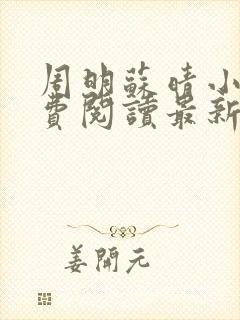 周明蘇晴小
費閱讀最新
姜開元